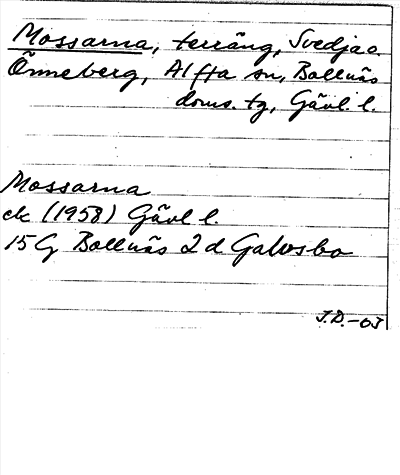 Mossarna, terräng, Svedja o.
Önneberg, Alfta sn, Bollnäs
doms. tg, Gävl. l.
Mossarna
ek (1958) Gävl l.
15G Bollnäs 2 d Galvsbo
J.D.-03